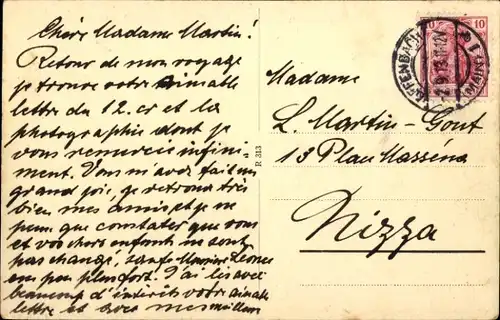 Chère Madame Martin!
Retour de mon voyage
je trouve votre aimable
lettre du 12. cr et la
photographie dont je
vous remercie infini-
ment. Vous m'avez fait un
grand joie, je retrouve très
bien mes amis et je ne
peux que constater que vous
et vos chers enfants ne sont
pas changé, sauf Maurice
un peu plus fort. J'ai lis avec
beaucoup d'intérêts votre aimable
lettre et avec mes meilleurs
R 313
10
10
Madame
L. Martin-Gout
13 Place Masséna
Nizza